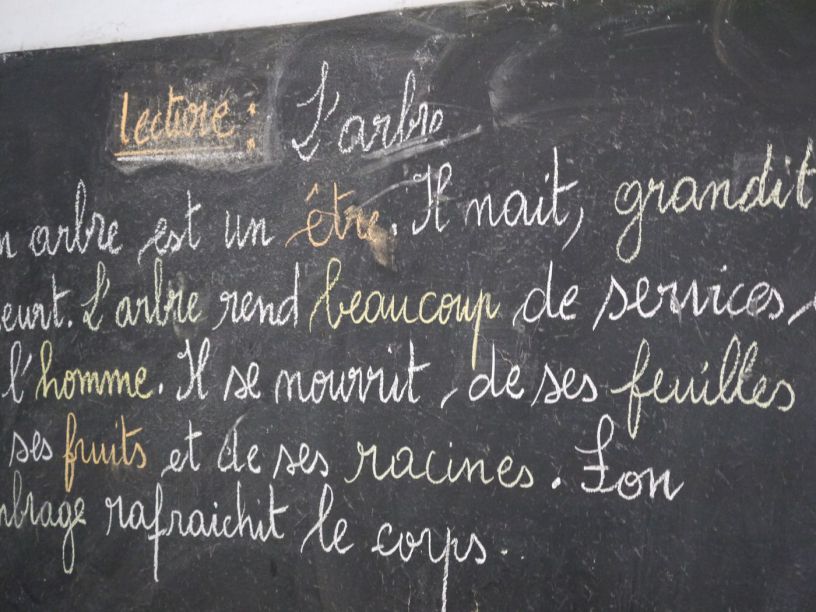 lecture : L'arbre
n arbre est un être. Il nait, grandit
eurt. L'arbre rend beaucoup de services
l'homme. Il se nourrit, de ses feuilles
ses fruits et de ses racines. Son
mbrage rafraichit le corps.